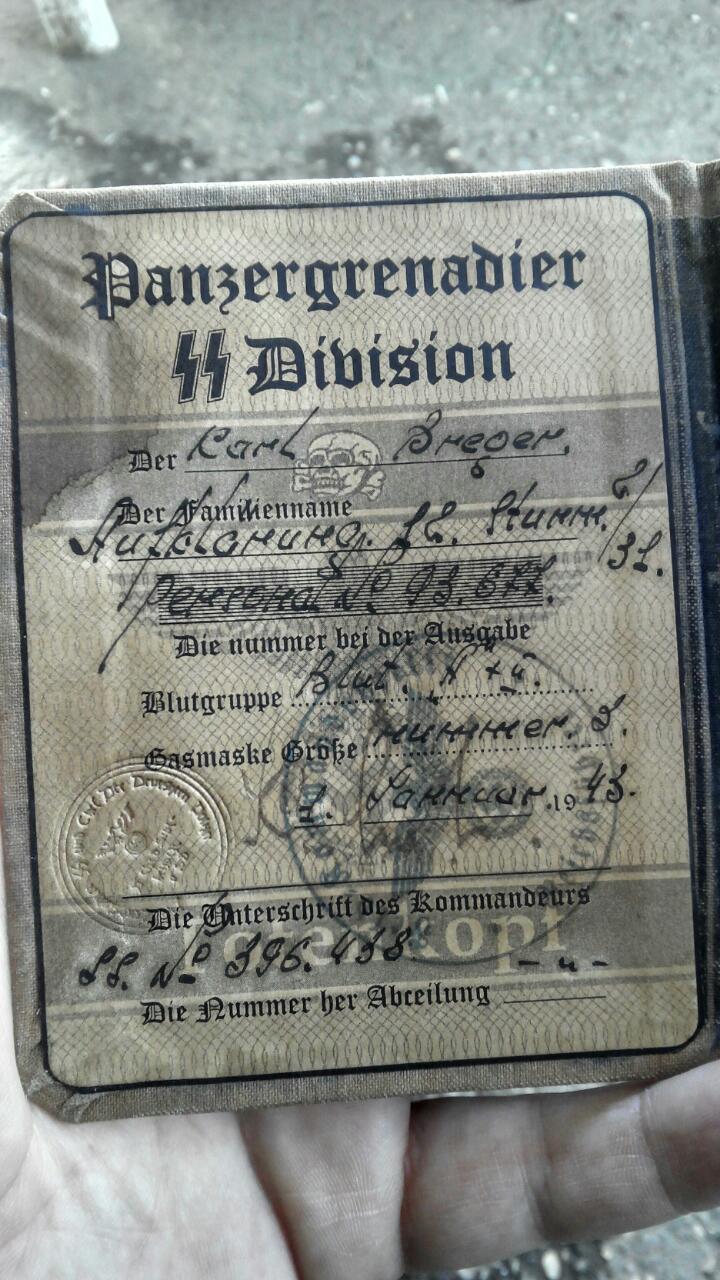 Panzergrenadier
SS Division
Der Karl Breger.
Der Familienname
Aufklarung. SS. Sturm.
31.
Personal № 93.677.
Die nummer bei der Ausgabe
Blutgruppe Blut. A
Gasmaske Größe nummer. 3.
1. Januar .19 43.
Die Unterschrift des Kommandeurs
Totenkopf
SS. № 396.438. -"-
Die Nummer her Abceilung